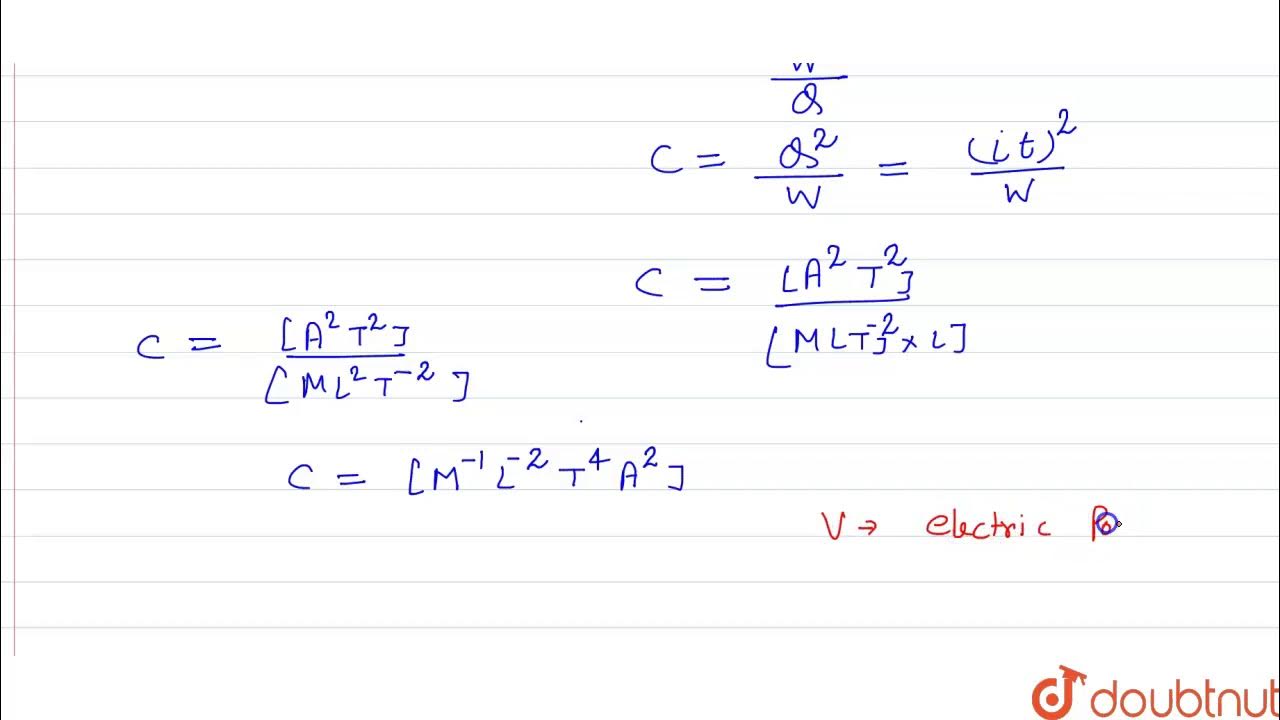 W/Q
C = Q²/W = (it)²/W
C = [A² T²]/[MLT⁻² × L]
C = [A² T²]/[ML² T⁻²]
C = [M⁻¹ L⁻² T⁴ A²]
V → electric Po
doubtnut